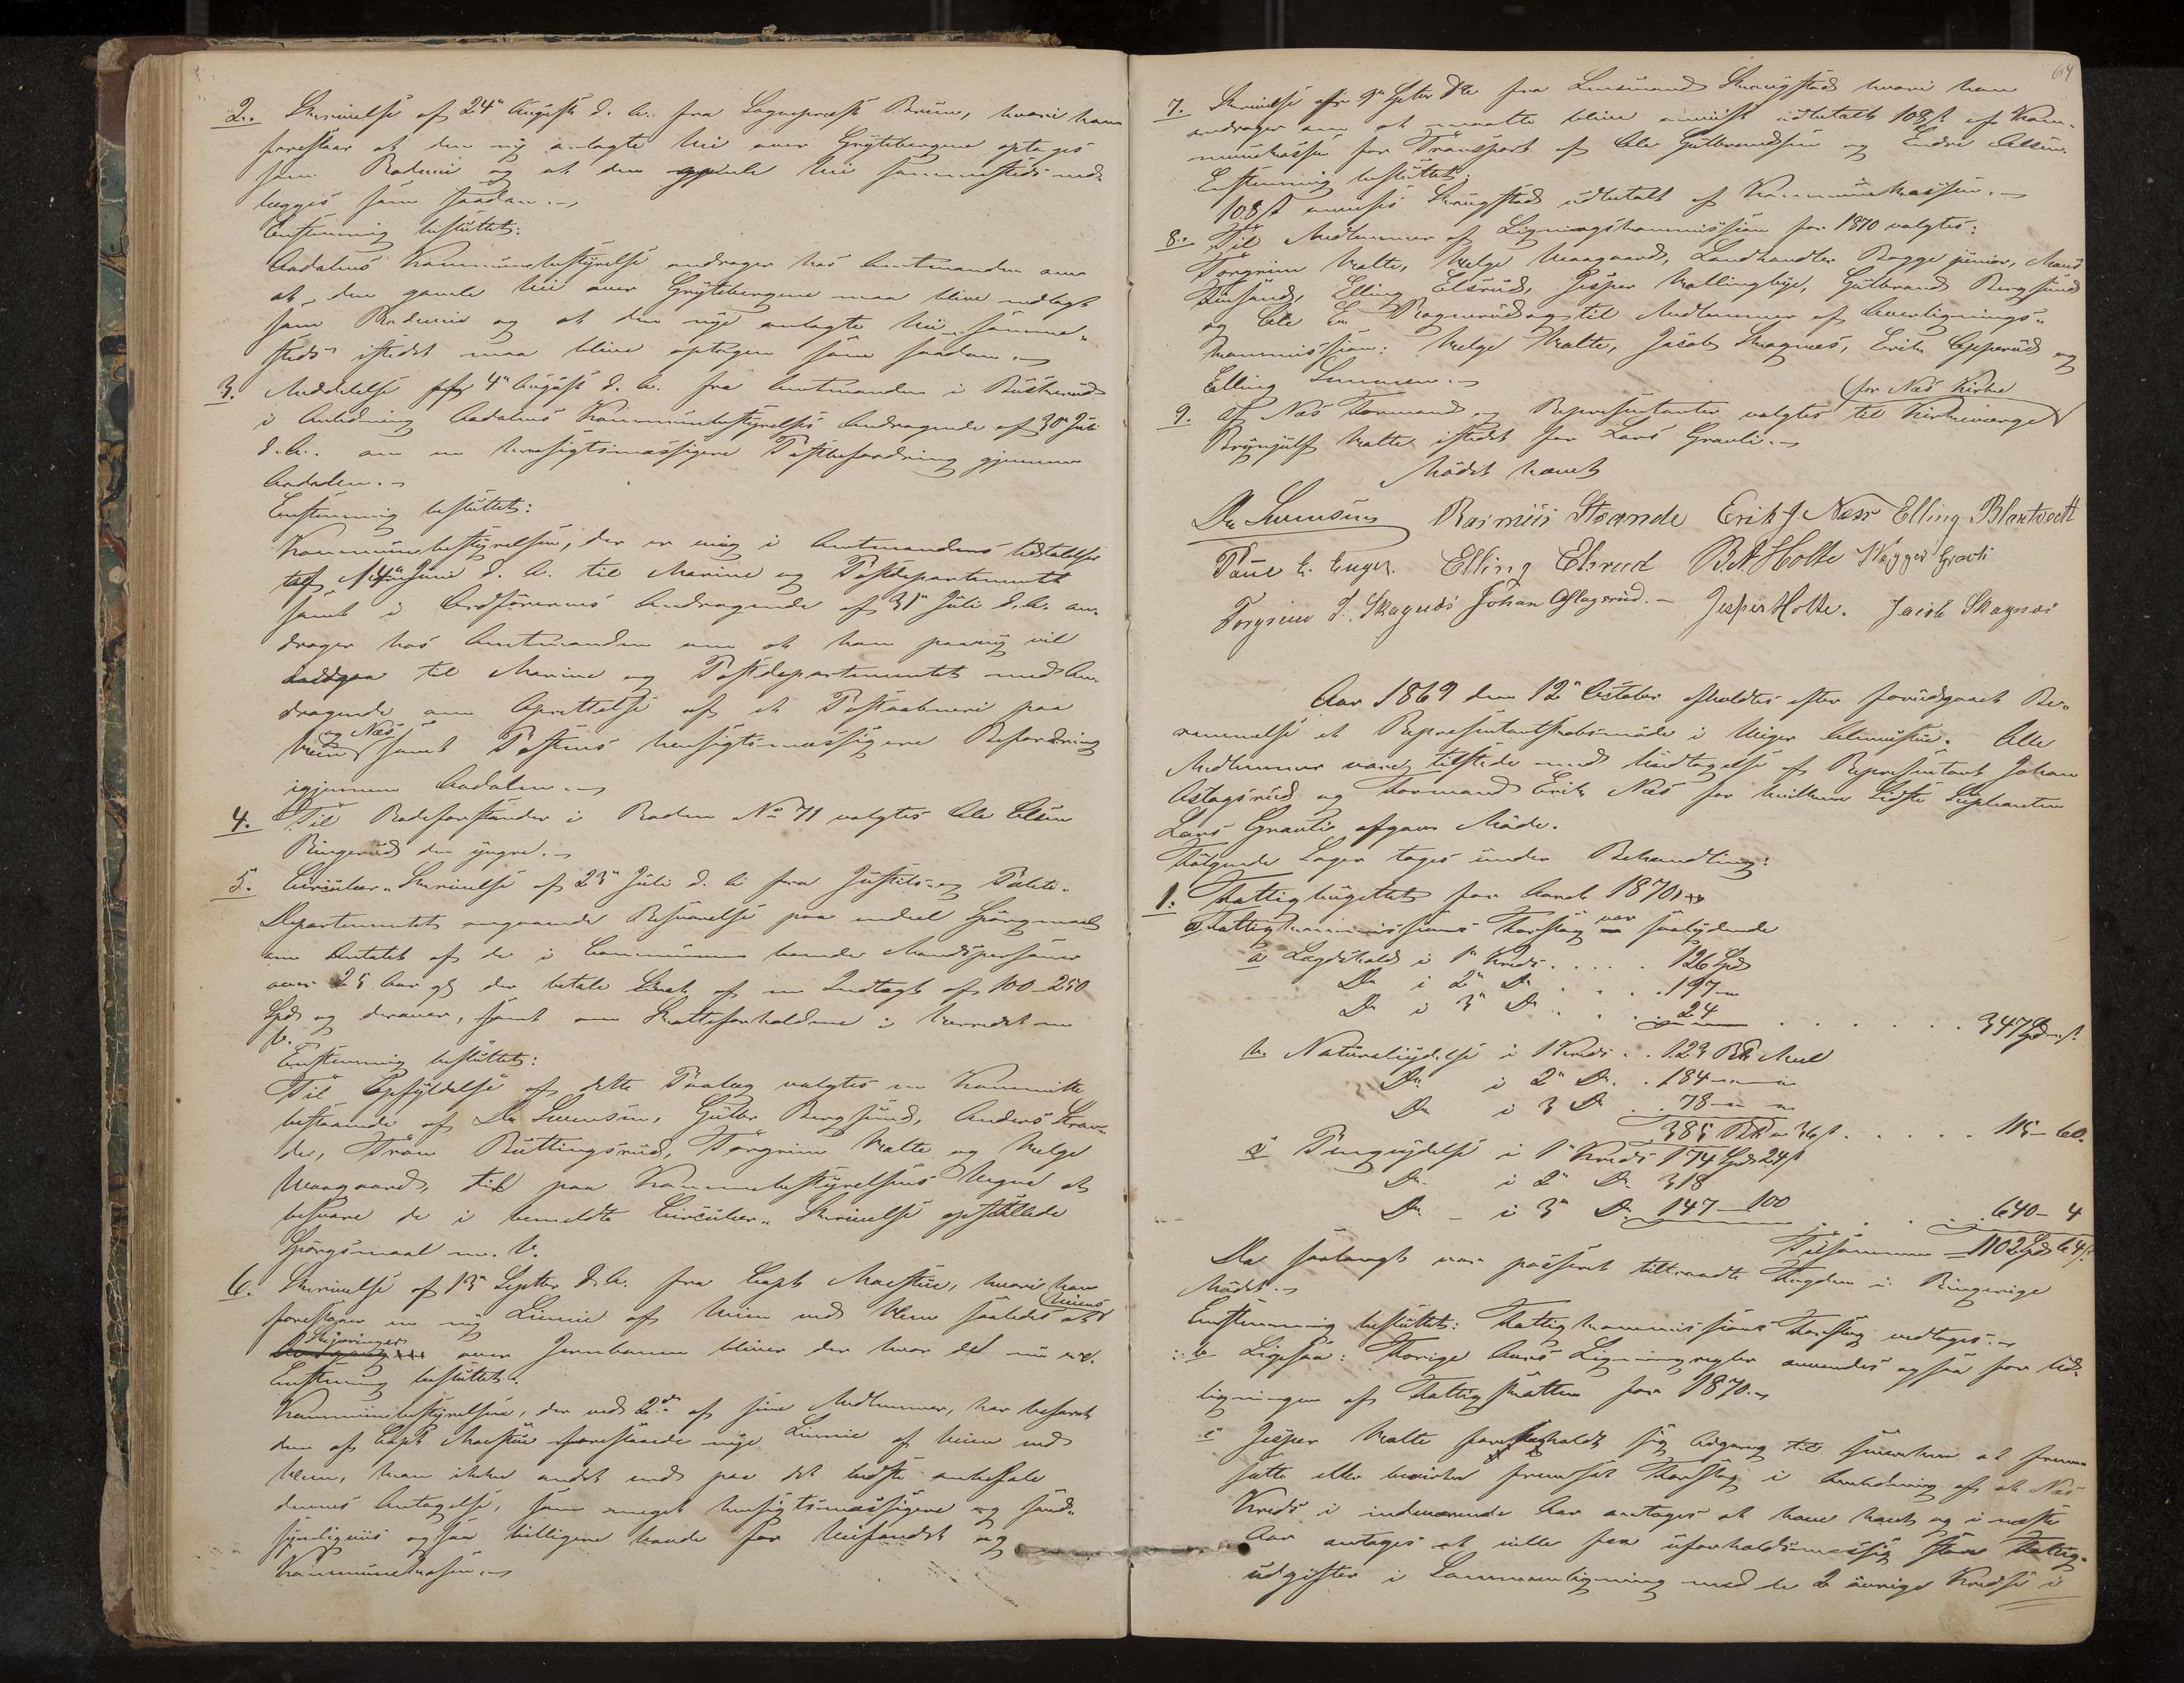 2. Skrivelse af 24de August d. A. fra Sogneprest Bruun, hvori han
foreslaar at den ny anlagte Vei over Grytebergene optages
som Rodevei og at den gamle Vei sammesteds ned-
lægges som saadan.
Enstemmig besluttet:
Aadalens Kommunebestyrelse andrager hos Amtmanden om
at den gamle Vei over Grytebergene maa blive nedlagt
som Rodevei og at den nye anlagte Vei samme-
steds istedet maa blive optagen som saadan.
3. Meddelelse af 4de August d. A. fra Amtmanden i Buskerud
i Anledning Aadalens Kommunebestyrelses Andragende af 30te Juli
d. A. om en hensigtsmæssigere Postbefordring gjennem
Aadalen.
Enstemmig besluttet:
Kommunebestyrelsen, der er enig i Amtmandens Udtalelse
af 14de Juni d. A. til Marine og Postdepartementet
samt i Ordførerens Andragende af 31te Juli d. A. an-
drager hos Amtmanden om at han paany vil
til Marine og Postdepartementet med An-
dragende om Oprettelse af et Postaabneri paa
og Næs
Veien samt Postens hensigtsmæssigere Befordring
igjennem Aadalen.
4. Til Rodeforstander i Roden No 71 valgtes Ole Olsen
Ringerud den yngre.
5. Circulær-Skrivelse af 23de Juli d. A. fra Justits- og Politi-
Departementet angaaende Besvarelse paa endeel Spørgsmaal
om Antallet af de i Communen boende Mandspersoner
over 25 Aar og der betale Skat af en Indtægt af 100-250
Spd og derover, samt om Skatteforholdene i Herredet m
V.
Enstemmig besluttet:
Til Opfyldelse af dette Paalæg valgtes en Kommitte
bestaaende af Da Svensen, Gulbr Bergsund, Anders Stran-
de, Iver Buttingsrud, Torgrim Holte og Helge
Moegaard, til paa Kommunebestyrelsens Vegne at
besvare de i bemeldte Circulær-Skrivelse opstillede
Spørgsmaal m. V.
6. Skrivelse af 13de Septbr d. A. fra Capt Moestue, hvori han
foreslaaer en ny Linnie af Veien ved Veme saaledes at Veiens
Skjæringer
over Jernbanen bliver der hvor den nu er.
Enstemmig besluttet:
Kommunebestyrelsen, der ved 2de af sine Medlemmer, har besøgt
den af Capt Moestue foreslaaede nye Linnie af Veien ved
Veme, kan ikke andet end paa det bedste anbefale
dennes Antagelse, som meget hensigtsmæssigere og sand-
synligviis ogsaa billigere baade for Veifondet og
Kommunekassen.
64
7. Skrivelse af 9de Septbr d A fra Lensmand Skrugstad hvori han
andrager om at maatte blive anviist udbetalt 108 s af Kom-
munekassen for Transport af Ole Gulbrandsen og Endre Olsen.
Enstemmig besluttet:
108 s anvises Skrugstad udbetalt af Kommunekassen.
8. Til Medlemmer af Ligningskommissionen for 1870 valgtes:
Torgrim Holte, Helge Moegaard, Landhandler Bagge junior,
Elling Elsrud, Jesper Hallingbye, Gulbrand Bergsund
og Ole E. Ragnerud og til Medlemmer af Overlignings-
kommissionen: Helge Holte, Jacob Skagnæs, Erik Opperud og
Elling Semmen.
9. Af Næs Formænd og Repræsentanter valgtes til Kirkeverge for Næs Kirke
Brynjulf Holte istedet for Lars Gravli.
Mødet hævet
Da Svensen Rasmus Strande Erik J. Næss Elling Blaktvedt
Paul E. Enger. Elling Elsrud B. A. Holte Vegger Gravli
Torgrim J. Skagnæs Johan Aslagsrud. Jesper Holte. Jacob Skagnæs
Aar 1869 den 12te October afholdtes efter forudgaaet Be-
rammelse et Repræsentantskabsmøde i Viger Almustue. Alle
Medlemmer vare tilstede med Undtagelse af Repræsentant Johan
Aslagsrud og Formand Erik Næs for hvilken sidste Supleanten
Lars Gravli afgav Møde.
Følgende Sager toges under Behandling:
1. Fattigbudgettet for Aaret 1870
a Fattigkommissionens Forslag var saalydende
a Lægdehold i 1te Kreds . . . . 126 Spd
Do i 2de Do . . . 197 "
Do i 3de Do . . . 24 . . . . . . . 347 Spd
b. Naturalydelse i 1 Kreds . . 123 Mel
Do i 2de Do. . 184
Do i 3 Do . . 78
385 a 36 s . . . . . . 115 - 60.
c Pengeydelse i 1te Kreds 174 Spd 24 s
Do. i 2de Do. 318
Do - i 3de Do. 147 - 100 . . . . . 640 - 4
Tilsammen 1102 Spd 64 s.
Da saalangt var passeret tiltraadte Fogden i Ringerige
Mødet.
Enstemmig besluttet: Fattigkommissionens Forslag vedtages.
b Ligesaa: Forrige Aars Ligningsregler anvendes ogsaa for Ud-
ligningen af Fattigskatten for 1870.
c Jesper Holte forbeholdt sig Adgang til senerehen at frem-
sætte eller bevirke fremsat Forslag i Anledning af at Næs
Kreds i indeværende Aar antages at have havt og i næste
Aar antages at ville faa uforholdsmæssig store Fattig-
udgifter i Sammenligning med de 2 øvrige Kredse i